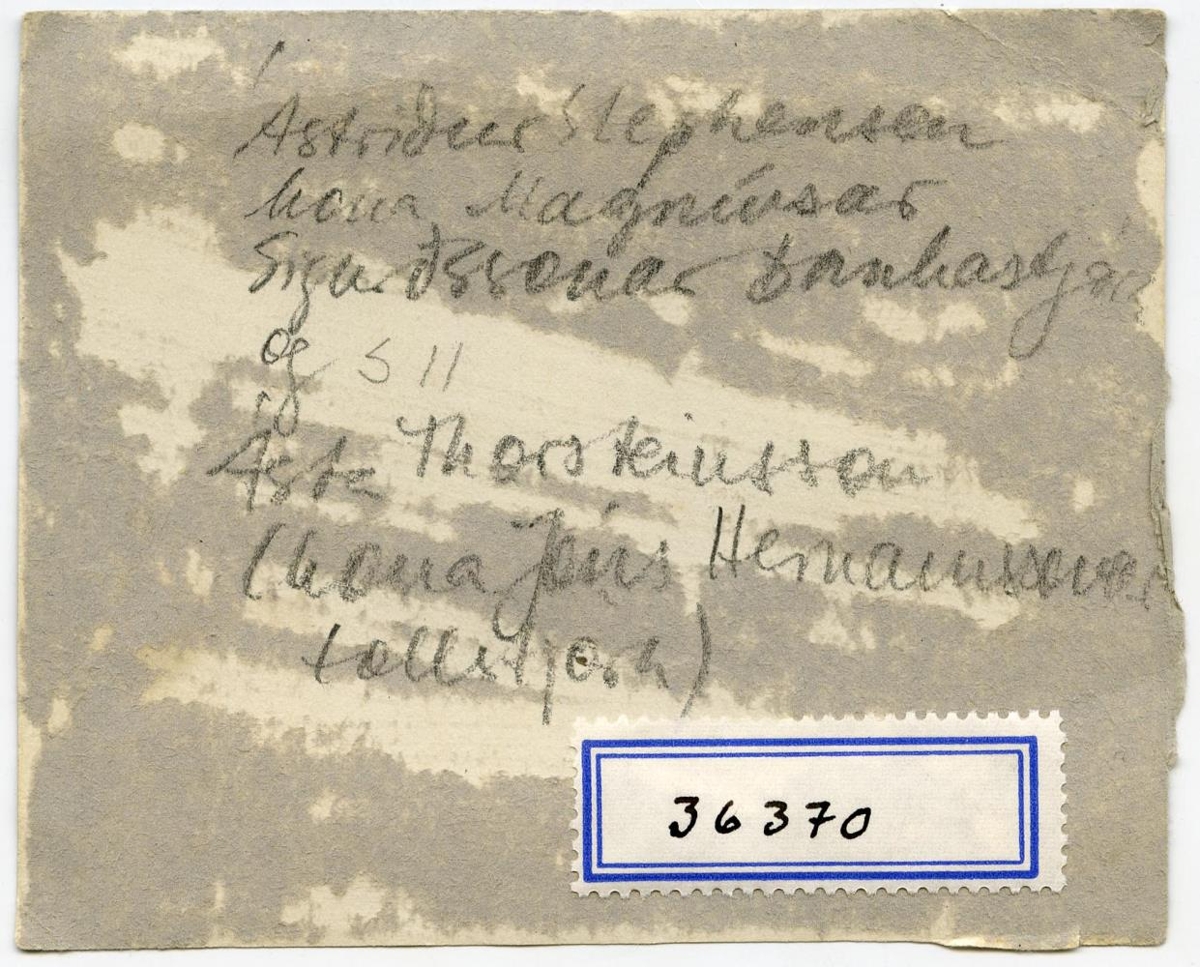 Ástríður Stephensen
kona Magnúsar
Sigurðssonar bankastjóra
og S 11
Ásta Thorsteinsson
(kona Jóns Hermannssonar
tollstjóra)
36370